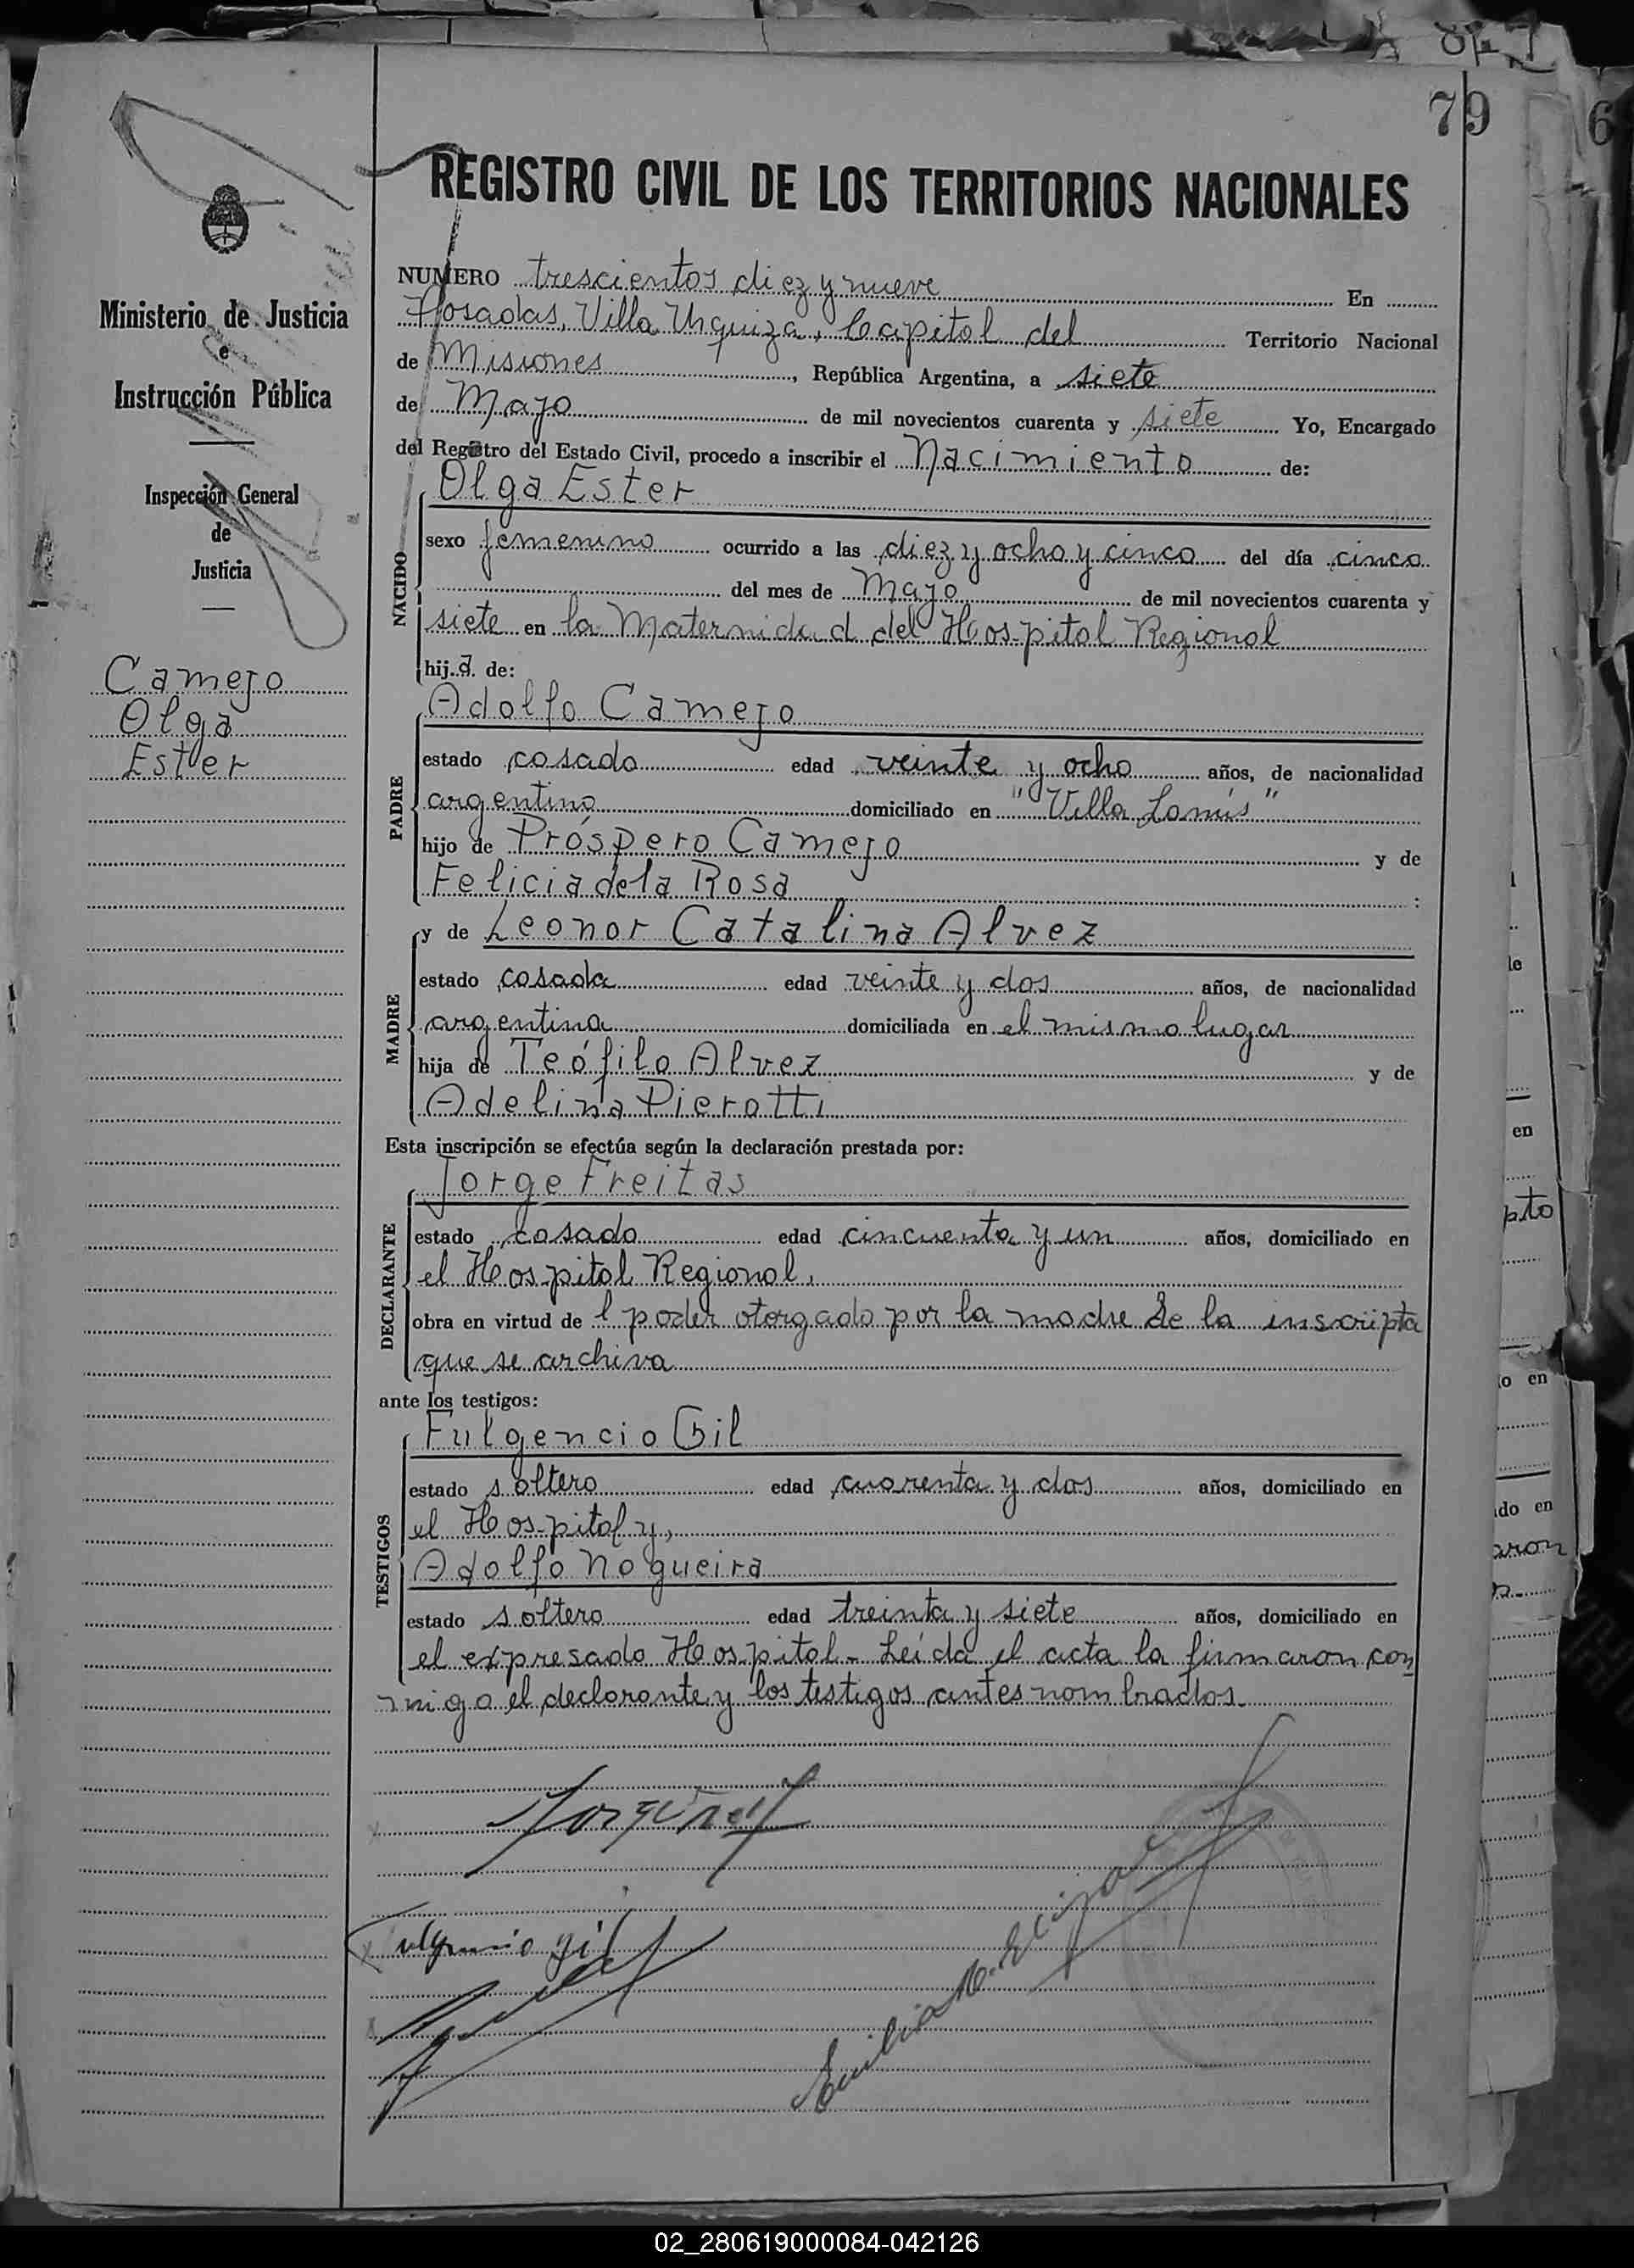 79
6
REGISTRO CIVIL DE LOS TERRITORIOS NACIONALES
Ministerio de Justicia
e
Instrucción Pública
Inspección General
de
Justicia
Camejo
Olga
Ester
NUMERO trescientos diez y nueve En
Posadas, Villa Urquiza, Capital del Territorio Nacional
de Misiones, República Argentina, a siete
de Mayo de mil novecientos cuarenta y siete Yo, Encargado
del Registro del Estado Civil, procedo a inscribir el Nacimiento de:
Olga Ester
NACIDO
sexo femenino ocurrido a las diez y ocho y cinco del día cinco
del mes de Mayo de mil novecientos cuarenta y
siete en la Maternidad del Hospital Regional
hija de:
Adolfo Camejo
PADRE
estado casado edad veinte y ocho años, de nacionalidad
argentino domiciliado en "Villa Lanús"
hijo de Próspero Camejo y de
Felicia de la Rosa :
y de Leonor Catalina Alvez
MADRE
estado casada edad veinte y dos años, de nacionalidad
argentina domiciliada en el mismo lugar
hija de Teófilo Alvez y de
Adelina Pierotti
Esta inscripción se efectúa según la declaración prestada por:
Jorge Freitas
DECLARANTE
estado casado edad cincuenta y un años, domiciliado en
el Hospital Regional,
obra en virtud de l poder otorgado por la madre de la inscripta
que se archiva
ante los testigos:
Fulgencio Gil
TESTIGOS
estado soltero edad cuarenta y dos años, domiciliado en
el Hospital y,
Adolfo Nogueira
estado soltero edad treinta y siete años, domiciliado en
el expresado Hospital. Leída el acta la firmaron con
migo el declarante y los testigos antes nombrados.
Fulgencio Gil
02_280619000084-042126